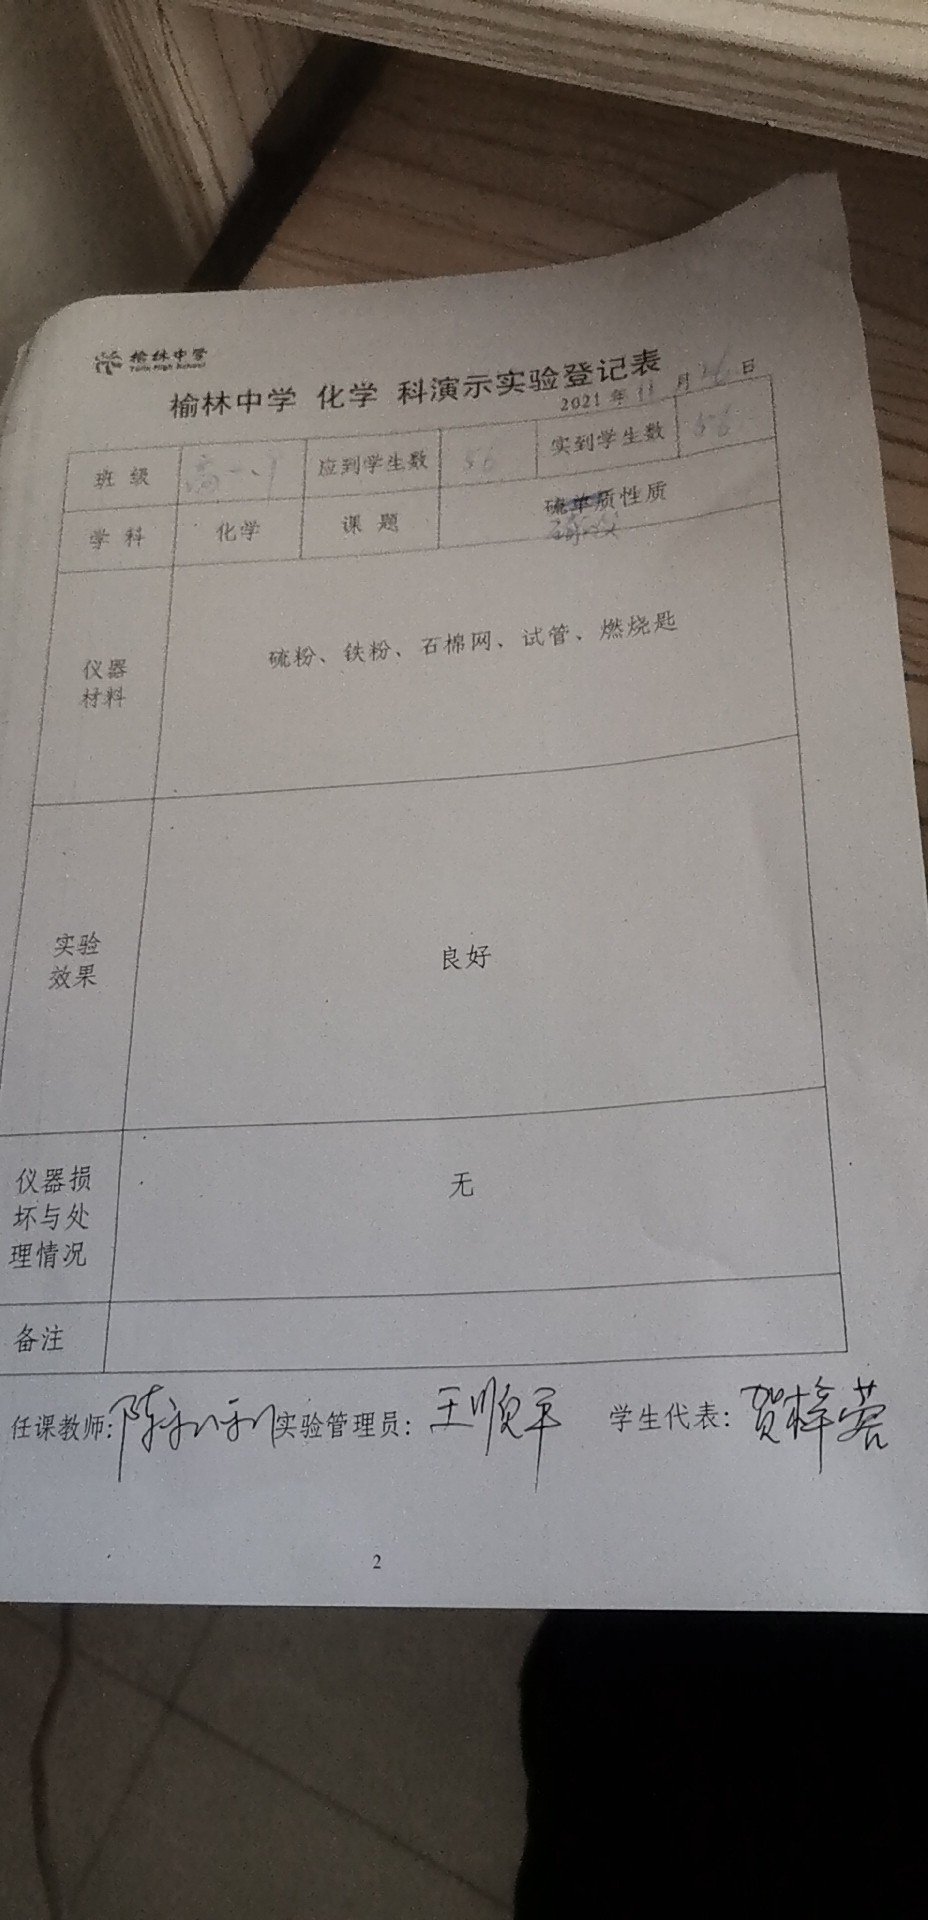 榆林中学
Yulin High School
榆林中学 化学 科演示实验登记表
2021 年 11 月 日
班 级 高一、1 应到学生数 56 实到学生数 56
学 科 化学 课 题 硫单质性质
仪器材料 硫粉、铁粉、石棉网、试管、燃烧匙
实验效果 良好
仪器损坏与处理情况 无
备注
任课教师: 实验管理员: 王顺平 学生代表: 贺梓蓉
2